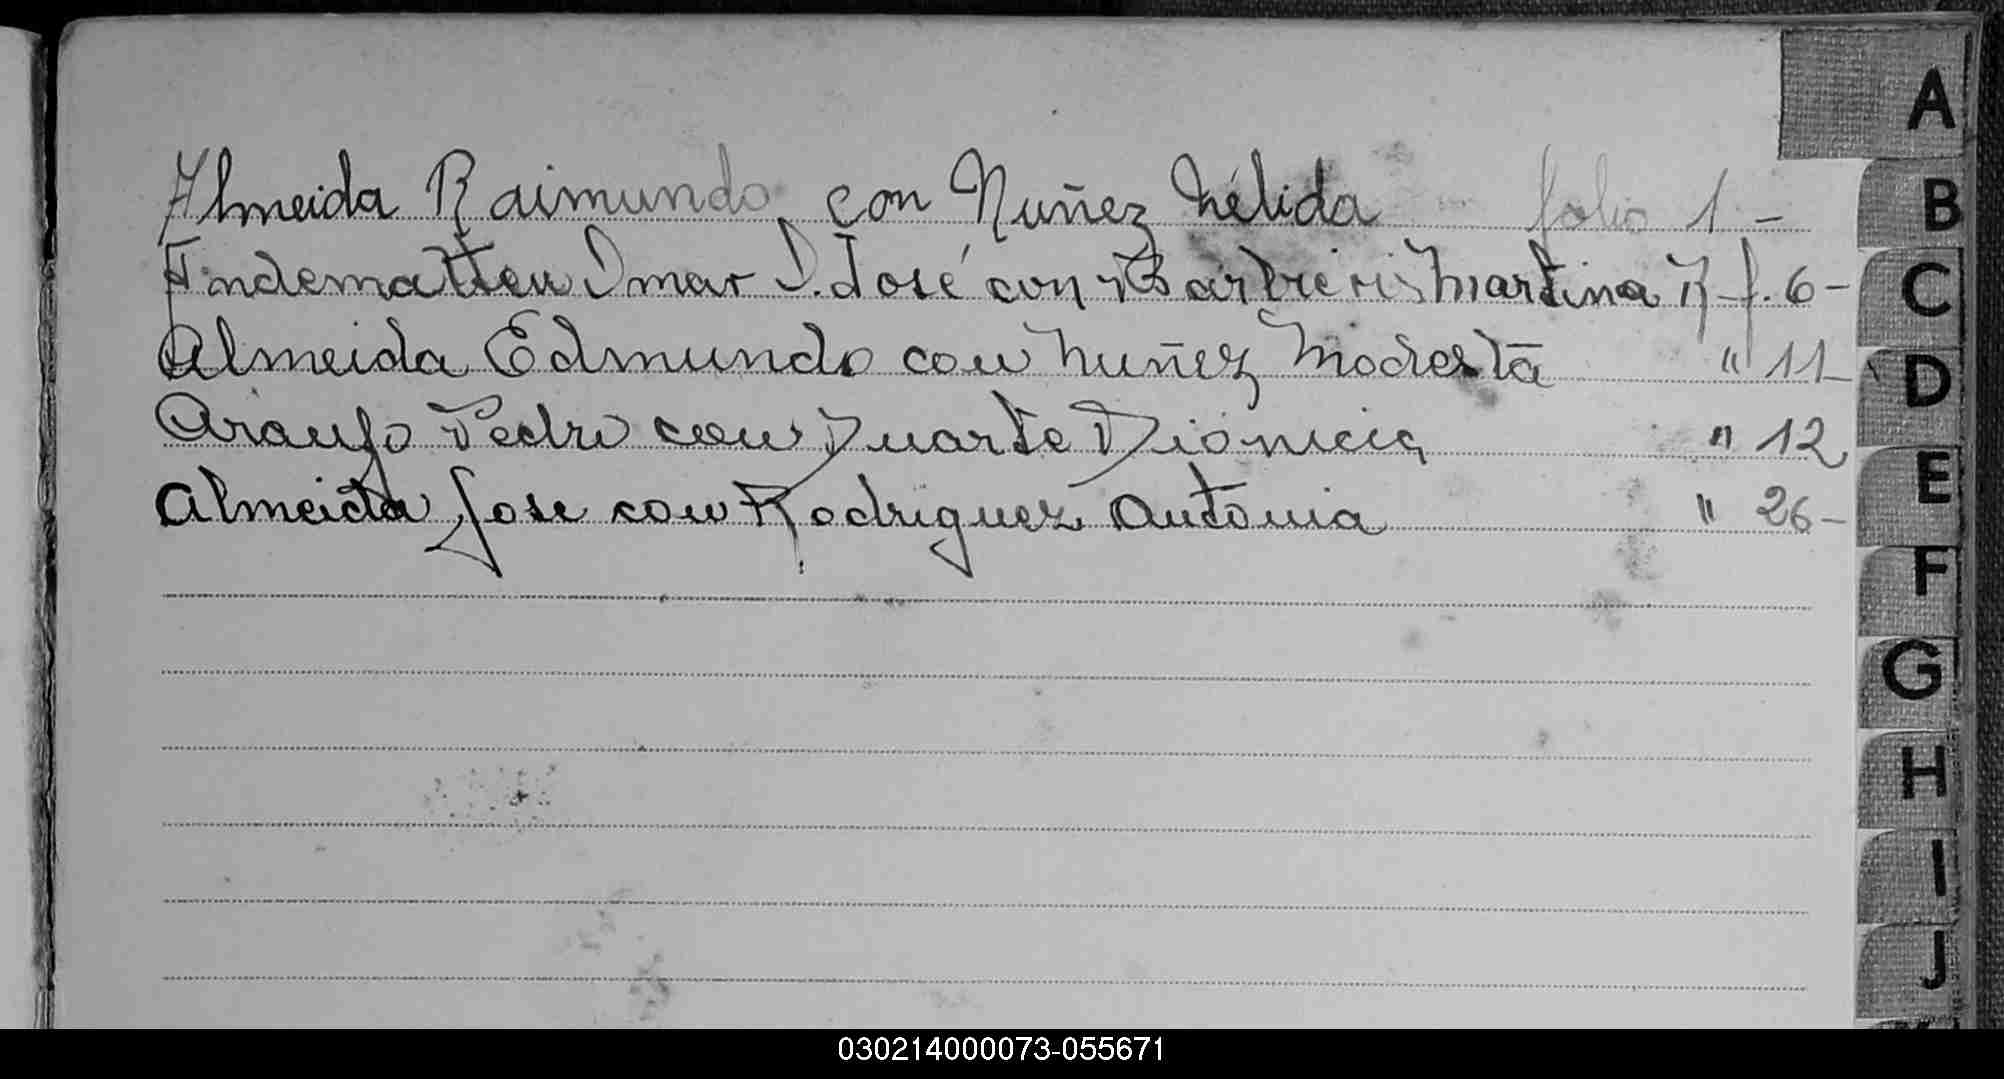 Almeida Raimundo con Nuñez Nélida folio 1 -
Andematten Omar D. José con Barbieris Martina R - f. 6 -
Almeida Edmundo con Nuñez Modesta " 11 -
Araujo Pedro con Duarte Dionicia " 12
Almeida Jose con Rodriguez Antonia " 26 -
A
B
C
D
E
F
G
H
I
J
030214000073-055671